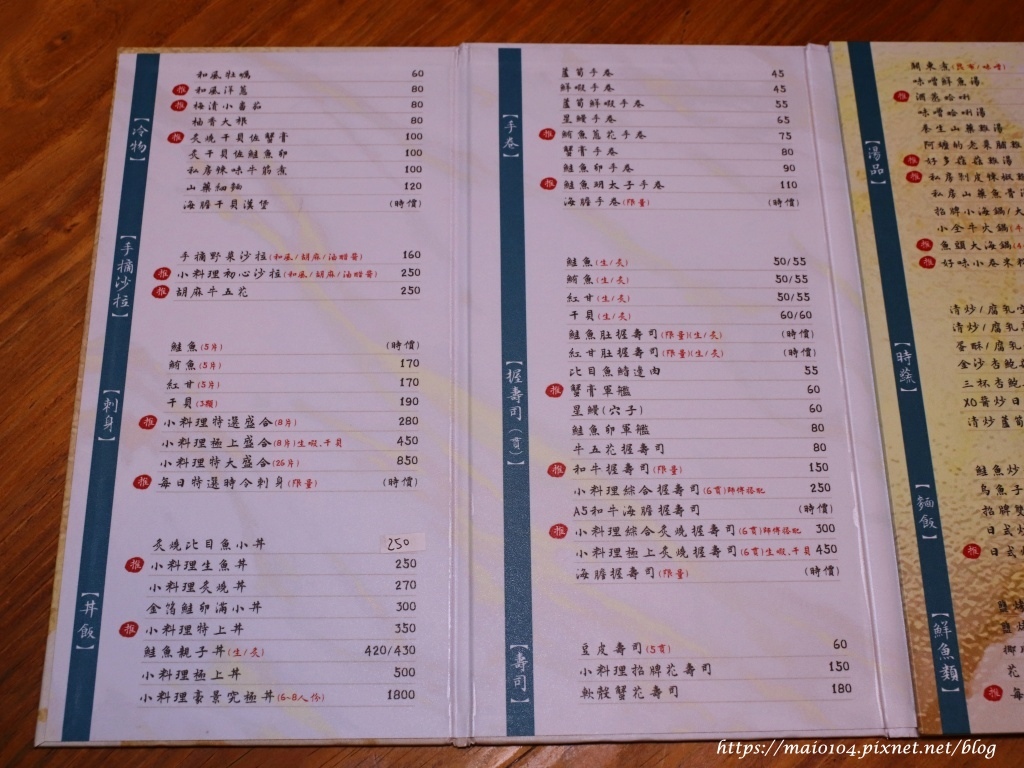 【冷物】
和風牡蠣 60
推 和風洋蔥 80
推 梅清小番茄 80
柚香大根 80
推 炙燒干貝佐蟹膏 100
炙干貝佐鮭魚卵 100
私房辣味牛筋煮 100
山藥細麵 120
海膽干貝漢堡 (時價)
【手摘沙拉】
手摘野菜沙拉(和風/胡麻/油醋醬) 160
推 小料理初心沙拉(和風/胡麻/油醋醬) 250
推 胡麻牛五花 250
【刺身】
鮭魚(5片) (時價)
鮪魚(5片) 170
紅甘(5片) 170
干貝(3顆) 190
推 小料理特選盛合(8片) 280
小料理極上盛合(8片)生蝦、干貝 450
小料理特大盛合(26片) 850
推 每日特選時令刺身(限量) (時價)
【丼飯】
炙燒比目魚小丼 250
推 小料理生魚丼 250
小料理炙燒丼 270
金箔鮭卵滿小丼 300
推 小料理特上丼 350
鮭魚親子丼(生/炙) 420/430
小料理極上丼 500
小料理豪景究極丼(6~8人份) 1800
【手卷】
蘆筍手卷 45
鮮蝦手卷 45
蘆筍鮮蝦手卷 55
星鰻手卷 65
推 鮪魚蔥花手卷 75
蟹膏手卷 80
鮭魚卵手卷 90
推 鮭魚明太子手卷 110
海膽手卷(限量) (時價)
【握壽司(貫)】
鮭魚(生/炙) 50/55
鮪魚(生/炙) 50/55
紅甘(生/炙) 50/55
干貝(生/炙) 60/60
鮭魚肚握壽司(限量)(生/炙) (時價)
紅甘肚握壽司(限量)(生/炙) (時價)
比目魚鰭邊肉 55
推 蟹膏軍艦 60
星鰻(穴子) 60
鮭魚卵軍艦 80
牛五花握壽司 80
推 和牛握壽司(限量) 150
小料理綜合握壽司(6貫)師傅搭配 250
A5和牛海膽握壽司 (時價)
推 小料理綜合炙燒握壽司(6貫)師傅搭配 300
小料理極上炙燒握壽司(6貫)生蝦、干貝 450
海膽握壽司(限量) (時價)
【壽司】
豆皮壽司(5貫) 60
小料理招牌花壽司 150
軟殼蟹花壽司 180
【湯品】
關東煮(昆布/味噌)
味噌鮮魚湯
推 酒蒸蛤蜊
味噌蛤蜊湯
養生山藥雞湯
阿嬤的老菜脯雞
推 好多菇菇雞湯
推 私房剝皮辣椒雞
私房山藥魚膏
招牌小海鍋/大
小全牛火鍋
推 魚頭大海鍋
推 好味小卷米粉
【時蔬】
清炒/腐乳
清炒/腐乳
蛋酥/腐乳
金沙杏鮑
三杯杏鮑
XO醬炒日
清炒蘆筍
【麵飯】
鮭魚炒
烏魚子
招牌雙
日式炒
推 日式
【鮮魚類】
鹽
鹽
椰
花
推 每
https://maio104.pixnet.net/blog